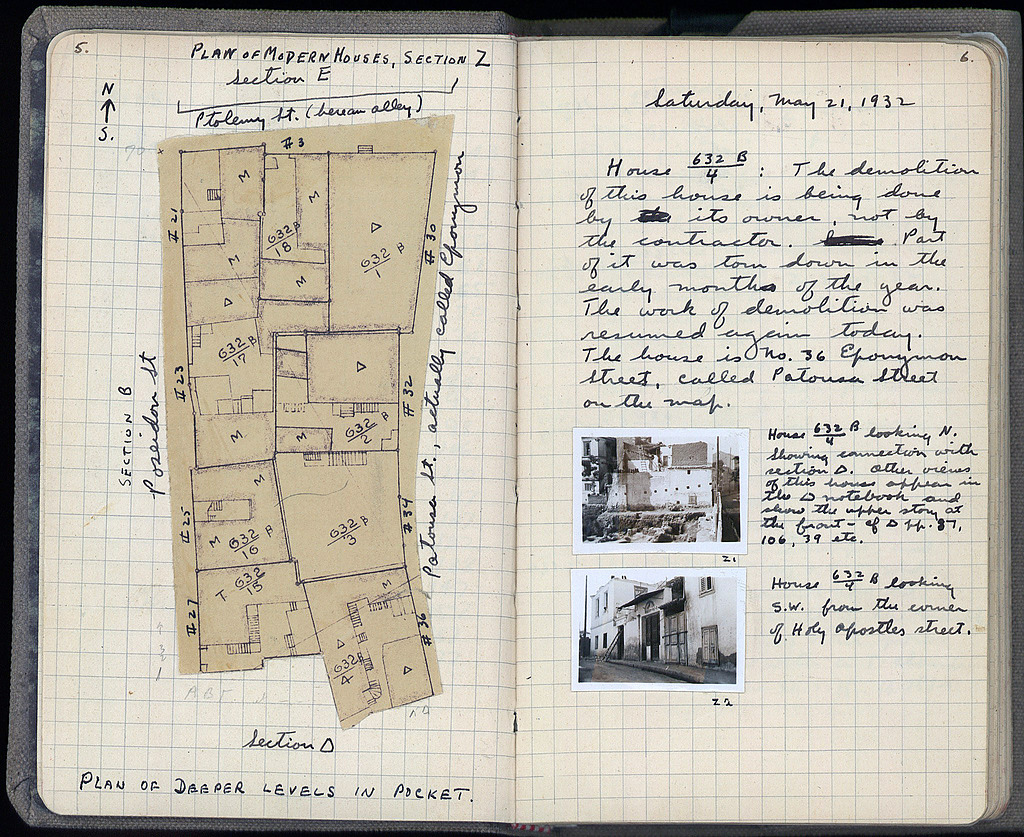 5.
PLAN OF MODERN HOUSES, SECTION Z
section E
N
S.
Ptolemy St. (herean alley)
#3
# 21
M
M
632 B
18
Δ
632 B
1
# 30
M
M
Δ
632 B
17
# 23
Δ
# 32
M
M
632 B
2
SECTION B
Poseidon St
Patousa St., actually called Eponymon
M
# 25
M
632 B
16
632 B
3
# 34
T
632
15
M
# 27
Δ
632 B
4
Δ
# 36
Section Δ
PLAN OF DEEPER LEVELS IN POCKET.
6.
Saturday, May 21, 1932
House 632 B
4 : The demolition
of this house is being done
by its owner, not by
the contractor. Part
of it was torn down in the
early months of the year.
The work of demolition was
resumed again today.
The house is No. 36 Eponymon
Street, called Patousa Street
on the map.
House 632/4 B looking N.
showing connection with
section Δ. Other views
of this house appear in
the Δ notebook and
show the upper story at
the front - cf Δ pp. 87,
106, 39 etc.
Z1
House 632/4 B looking
S.W. from the corner
of Holy Apostles street.
Z2